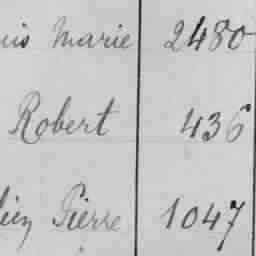 uis Marie 2480
Robert 436
Pierre 1047